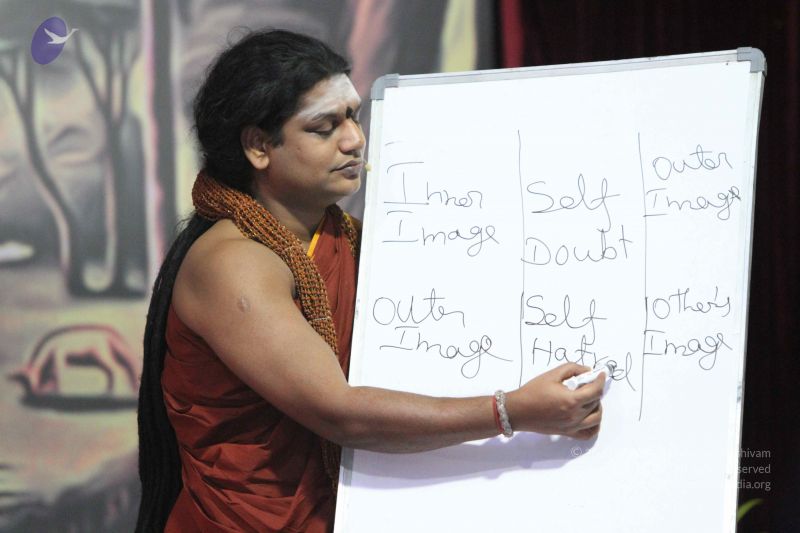 Inner
Image
Self
Doubt
outer
Image
outer
Image
Self
Hatred
other's
Image
hivam
served
dia.org